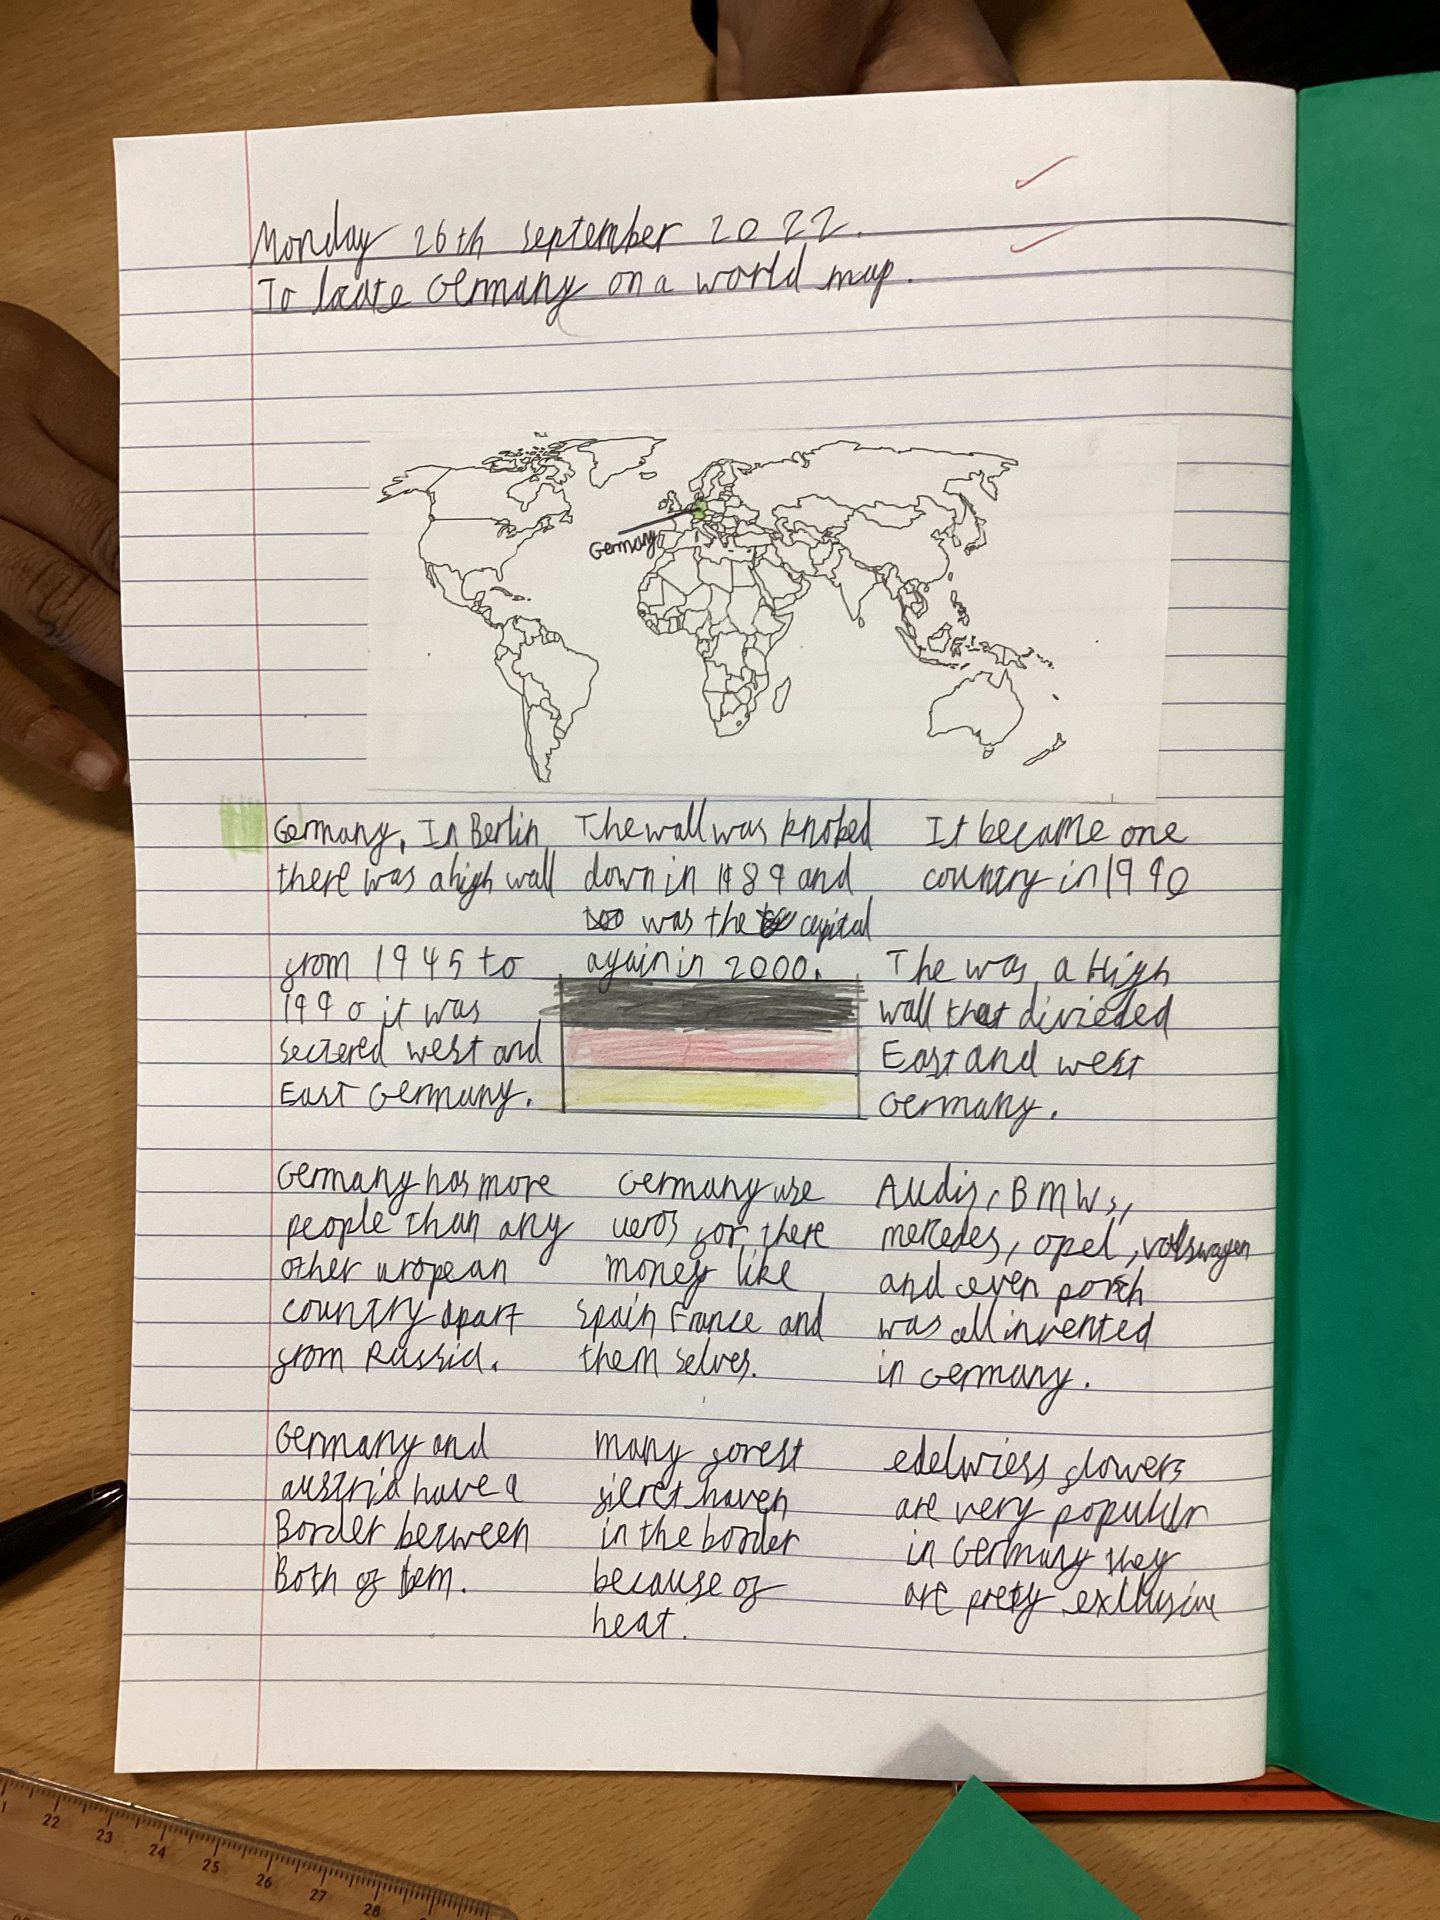 Monday 26th september 2022.
To locate Germany on a world map.
Germany
Germany, In Berlin
there was a high wall
The wall was knoked
down in 1989 and
was the capital
again in 2000.
It became one
country in 1990
from 1945 to
1990 it was
west and
East Germany.
The was a High
wall that divieded
East and west
Germany.
Germany has more
people than any
other uropean
country apart
from Russia.
Germany use
ueros for there
money like
Spain France and
them selves.
Audis, BMWs,
mercedes, opel, volkswagen
and even porch
was all invented
in Germany.
Germany and
austria have a
Border between
Both of tem.
many forest
haven
in the border
because of
heat.
edelwiess flowers
are very populer
in Germany they
are pretty exllusive
22 23 24 25 26 27 28